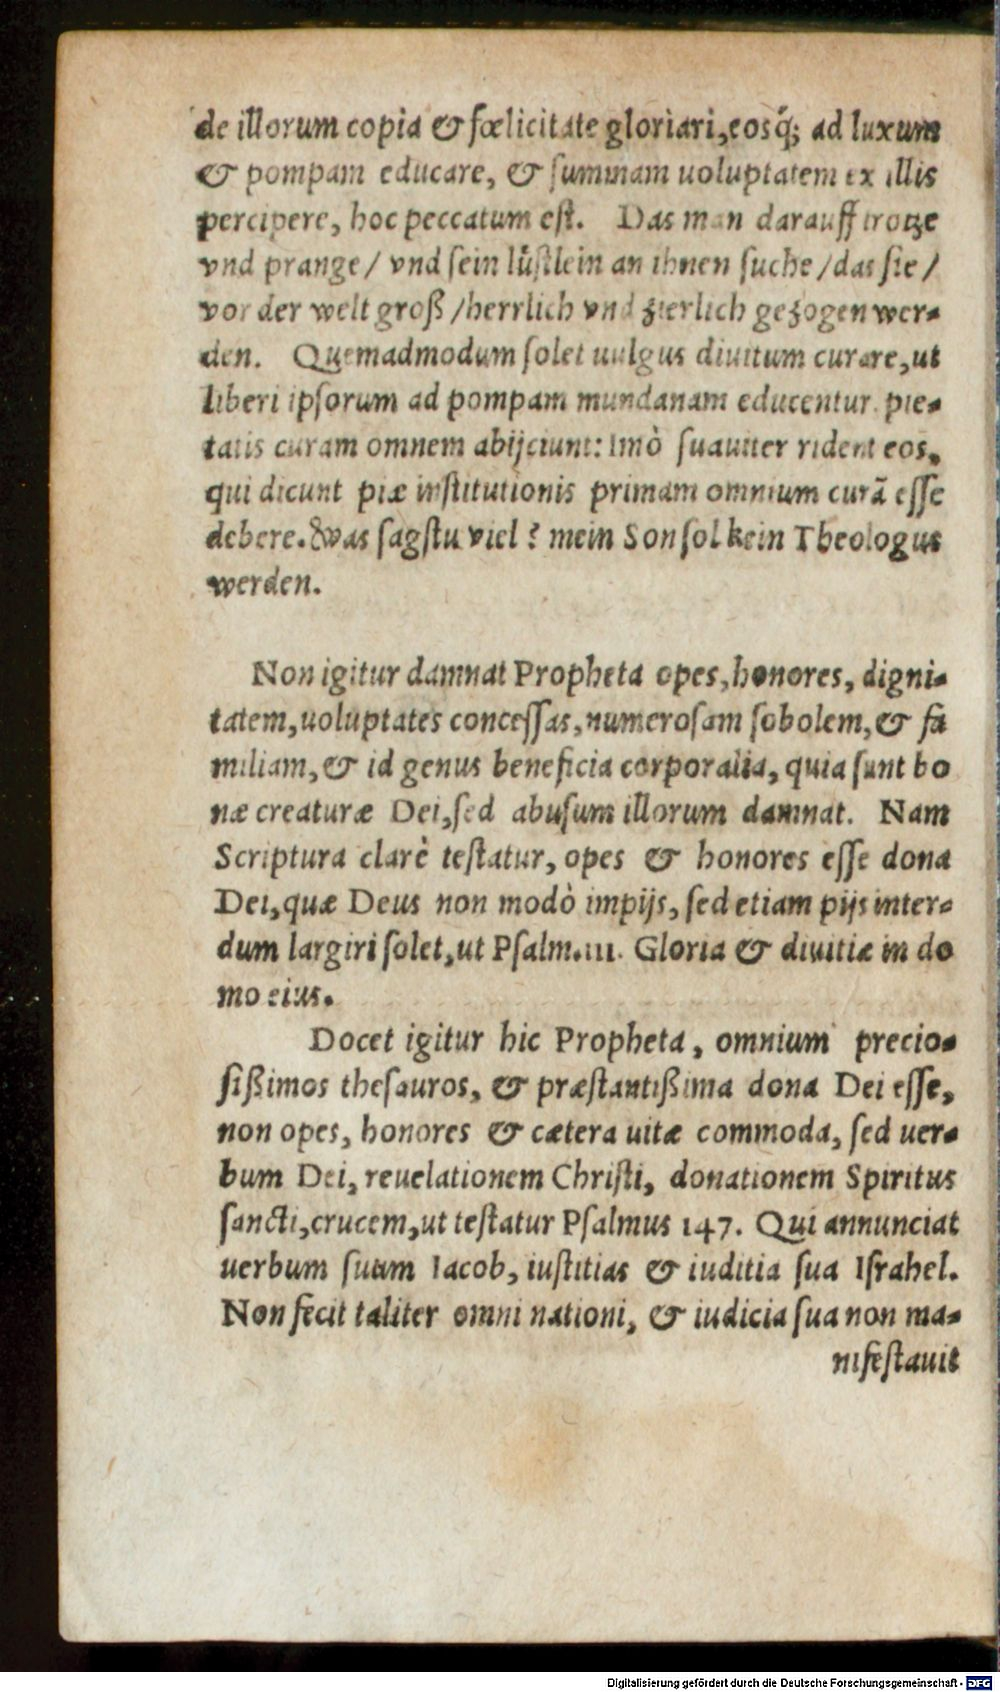 de illorum copia & fœlicitate gloriari, eosq́; ad luxum
& pompam educare, & summam uoluptatem ex illis
percipere, hoc peccatum est. Das man darauff trotze
vnd prange / vnd sein lüstlein an ihnen suche / das sie /
vor der welt groß / herrlich vnd zierlich gezogen wer-
den. Quemadmodum solet uulgus diuitum curare, ut
liberi ipsorum ad pompam mundanam educentur. pie-
tatis curam omnem abijciunt: Imò suauiter rident eos,
qui dicunt piæ institutionis primam omnium curã esse
debere. Was sagstu viel? mein Son sol kein Theologus
werden.
Non igitur damnat Propheta opes, honores, digni-
tatem, uoluptates concessas, numerosam sobolem, & fa
miliam, & id genus beneficia corporalia, quia sunt bo
næ creaturæ Dei, sed abusum illorum damnat. Nam
Scriptura clarè testatur, opes & honores esse dona
Dei, quæ Deus non modò impijs, sed etiam pijs inter-
dum largiri solet, ut Psalm. 111. Gloria & diuitiæ in do
mo eius.
Docet igitur hic Propheta, omnium precio-
sißimos thesauros, & præstantißima dona Dei esse,
non opes, honores & cætera uitæ commoda, sed uer-
bum Dei, reuelationem Christi, donationem Spiritus
sancti, crucem, ut testatur Psalmus 147. Qui annunciat
uerbum suum Iacob, iustitias & iuditia sua Israhel.
Non fecit taliter omni nationi, & iudicia sua non ma-
nifestauit
Digitalisierung gefördert durch die Deutsche Forschungsgemeinschaft - DFG